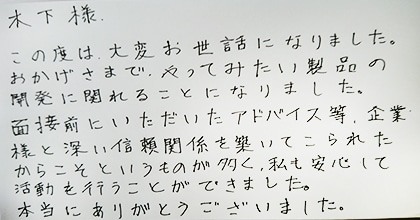 木下様.
この度は、大変お世話になりました。
おかげさまで、やってみたい製品の
開発に関れることになりました。
面接前にいただいたアドバイス等、企業
様と深い信頼関係を築いてこられた
からこそというものが多く、私も安心して
活動を行うことができました。
本当にありがとうございました。